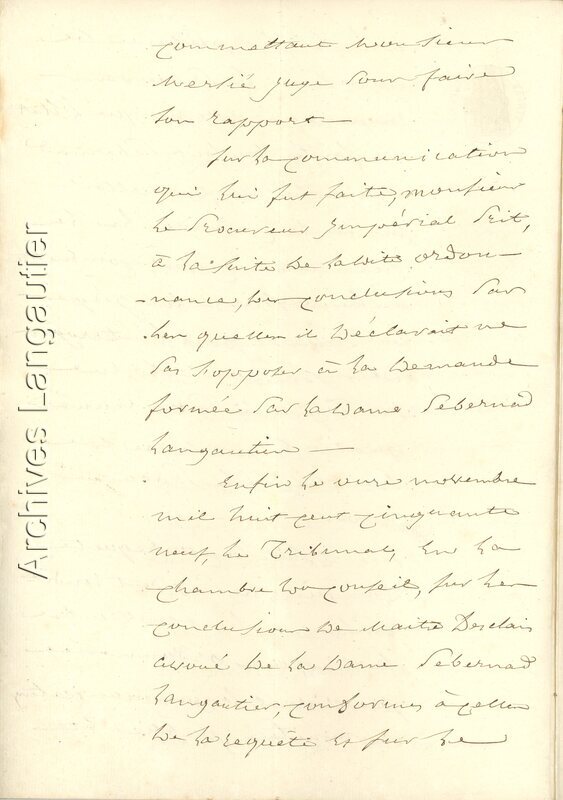 commettant Monsieur
Merlié juge pour faire
son rapport —
Sur la communication
qui lui fut faite, monsieur
le Procureur Impérial Prit,
à la suite de ladite ordon-
-nance, des conclusions par
lesquelles il Déclarait ne
pas s'opposer à la Demande
formée par la Dame Pebernad
Langautier —
Enfin le onze novembre
mil huit cent cinquante
neuf, le Tribunal, en la
chambre du conseil, sur les
conclusions De Maitre Desclais
avoué De la Dame Pebernad
Langautier, conformes à celles
De la requête et sur le
Archives Langautier